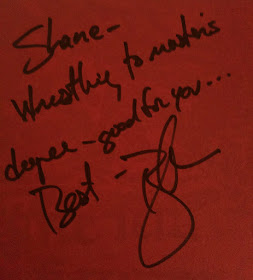 Shane-
Wrestling to master's
degree-good for you...
Best-